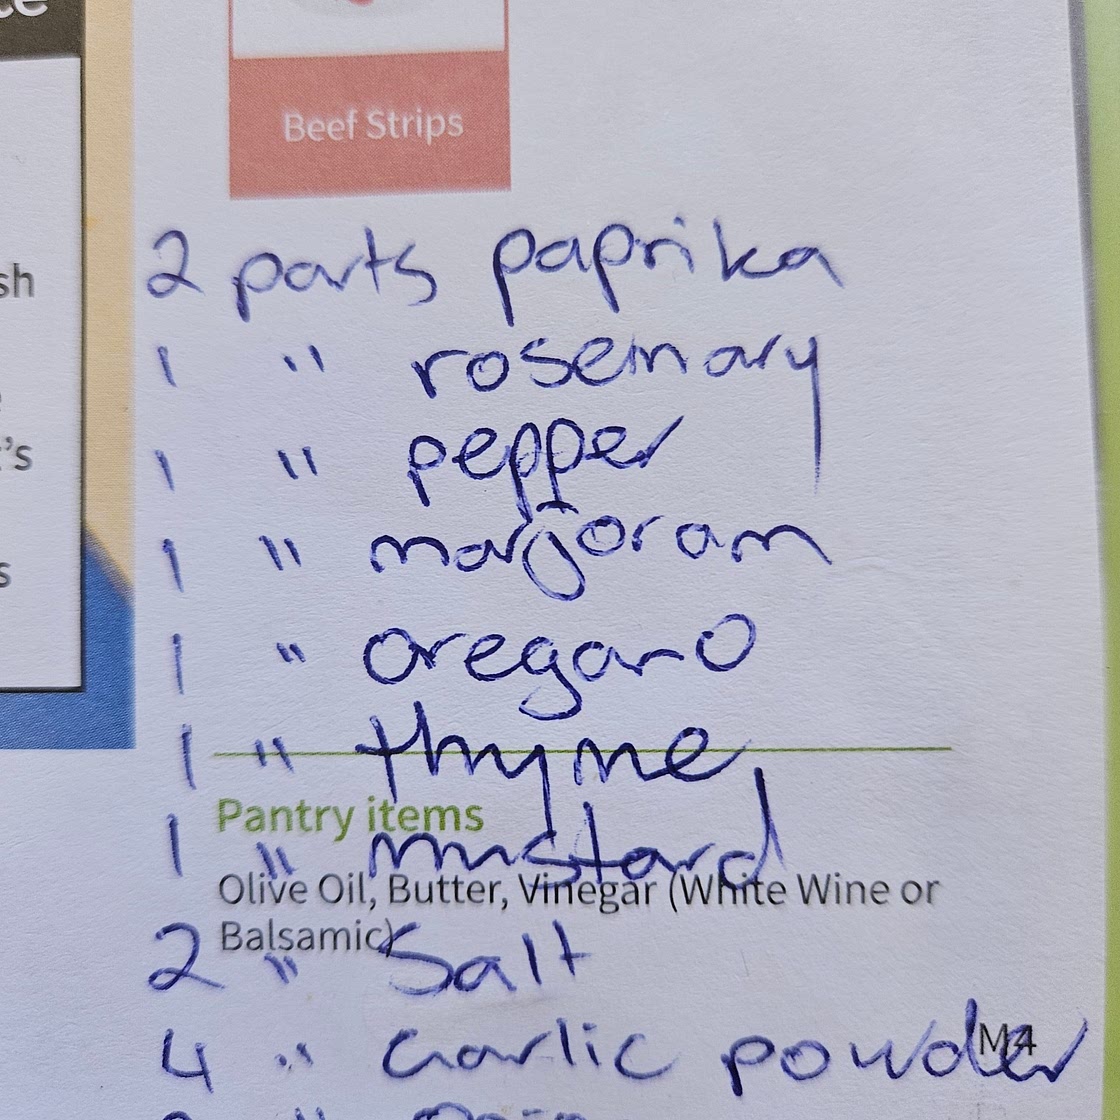 sh
's
s
Beef Strips
2 parts paprika
1 " rosemary
1 " pepper
1 " marjoram
1 " oregano
1 " thyme
Pantry items
1 " mustard
Olive Oil, Butter, Vinegar (White Wine or
Balsamic)
2 " Salt
4 " Garlic powder
M4